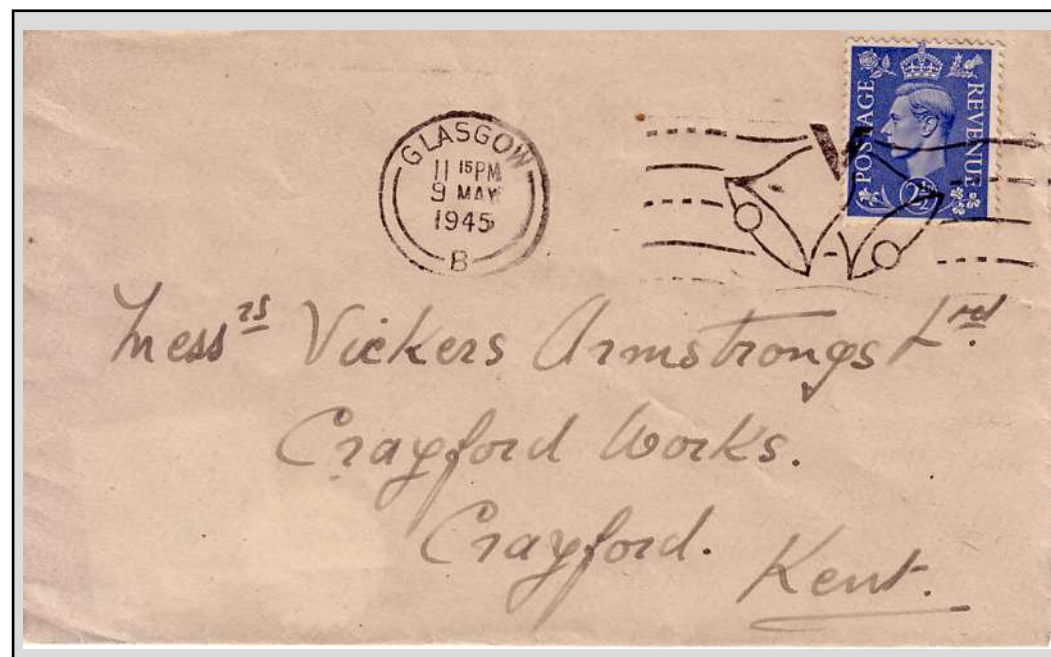 GLASGOW
11 15 PM
9 MAY
1945
B
POSTAGE REVENUE
2½
Messrs Vickers Armstrongs Ltd.
Crayford Works.
Crayford.
Kent.